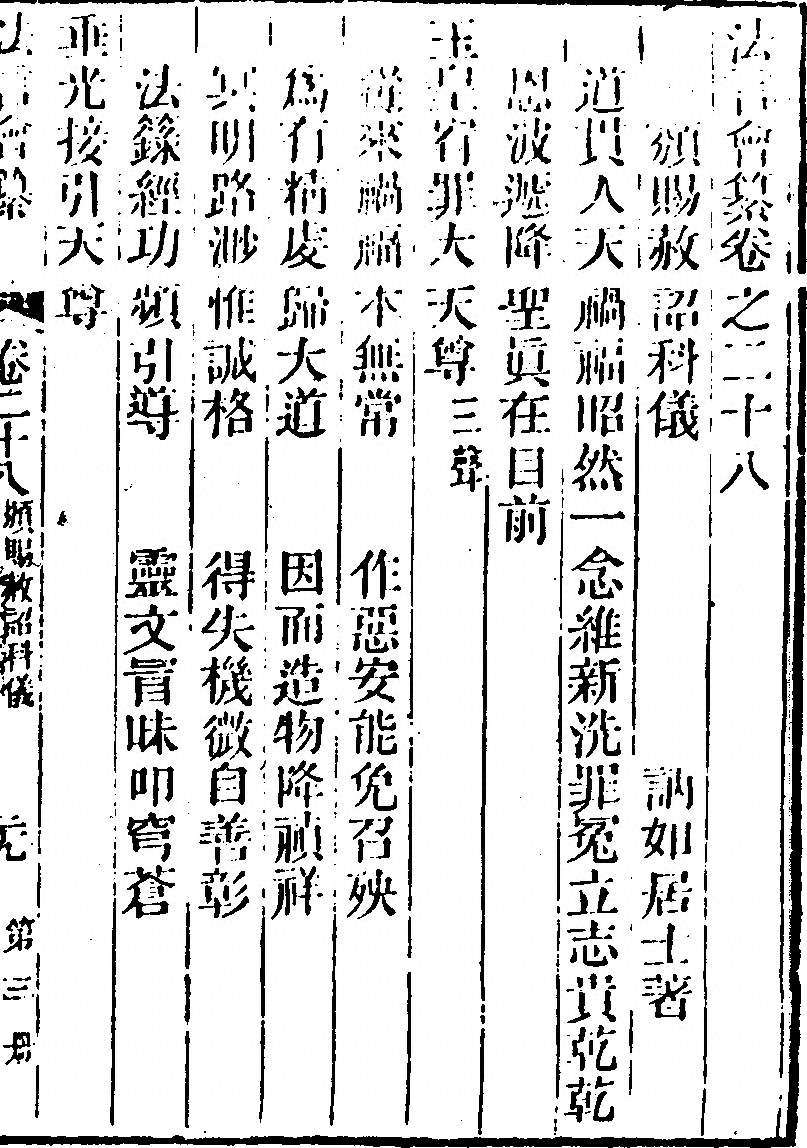 法言會纂卷之二十八
頒賜赦詔科儀　訥如居士著
道貫人天禍福昭然一念維新洗罪冤立志貴乾乾
恩波遞降聖眞在目前
玉皇宥罪大天尊三聲
從來禍福本無常　作惡安能免召殃
爲有精虔歸大道　因而造物降禎祥
冥明路渺惟誠格　得失機微自善彰
法籙經功頻引導　靈文旨味叩穹蒼
垂光接引天尊
法言會纂　卷二十八　頒賜赦詔科儀　元　第三